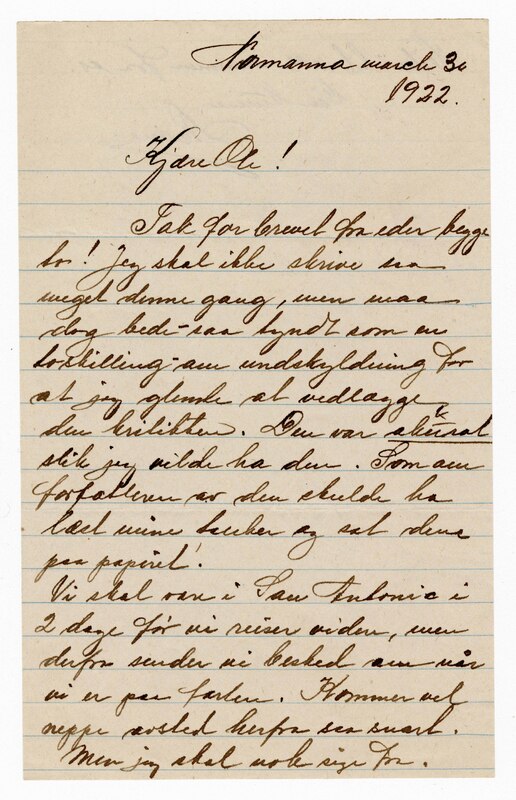 Normanna march 30
1922.
Kjære Ole!
Tak for brevet fra eder begge
to! Jeg skal ikke skrive saa
meget denne gang, men maa
dog bede - saa tyndt som en
tostilling - om undskyldning for
at jeg glemte at vedlægge
den kritikken. Den var akurat
slik jeg vilde ha den. Som om
forfatteren av den skulde ha
læst mine tanker og sat dem
paa papiret!
Vi skal være i San Antonio i
2 dage før vi reiser viden, men
derfra sender vi besked om når
vi er paa farten. Kommer vel
neppe avsted herfra saa snart.
Men jeg skal nok sige fra.